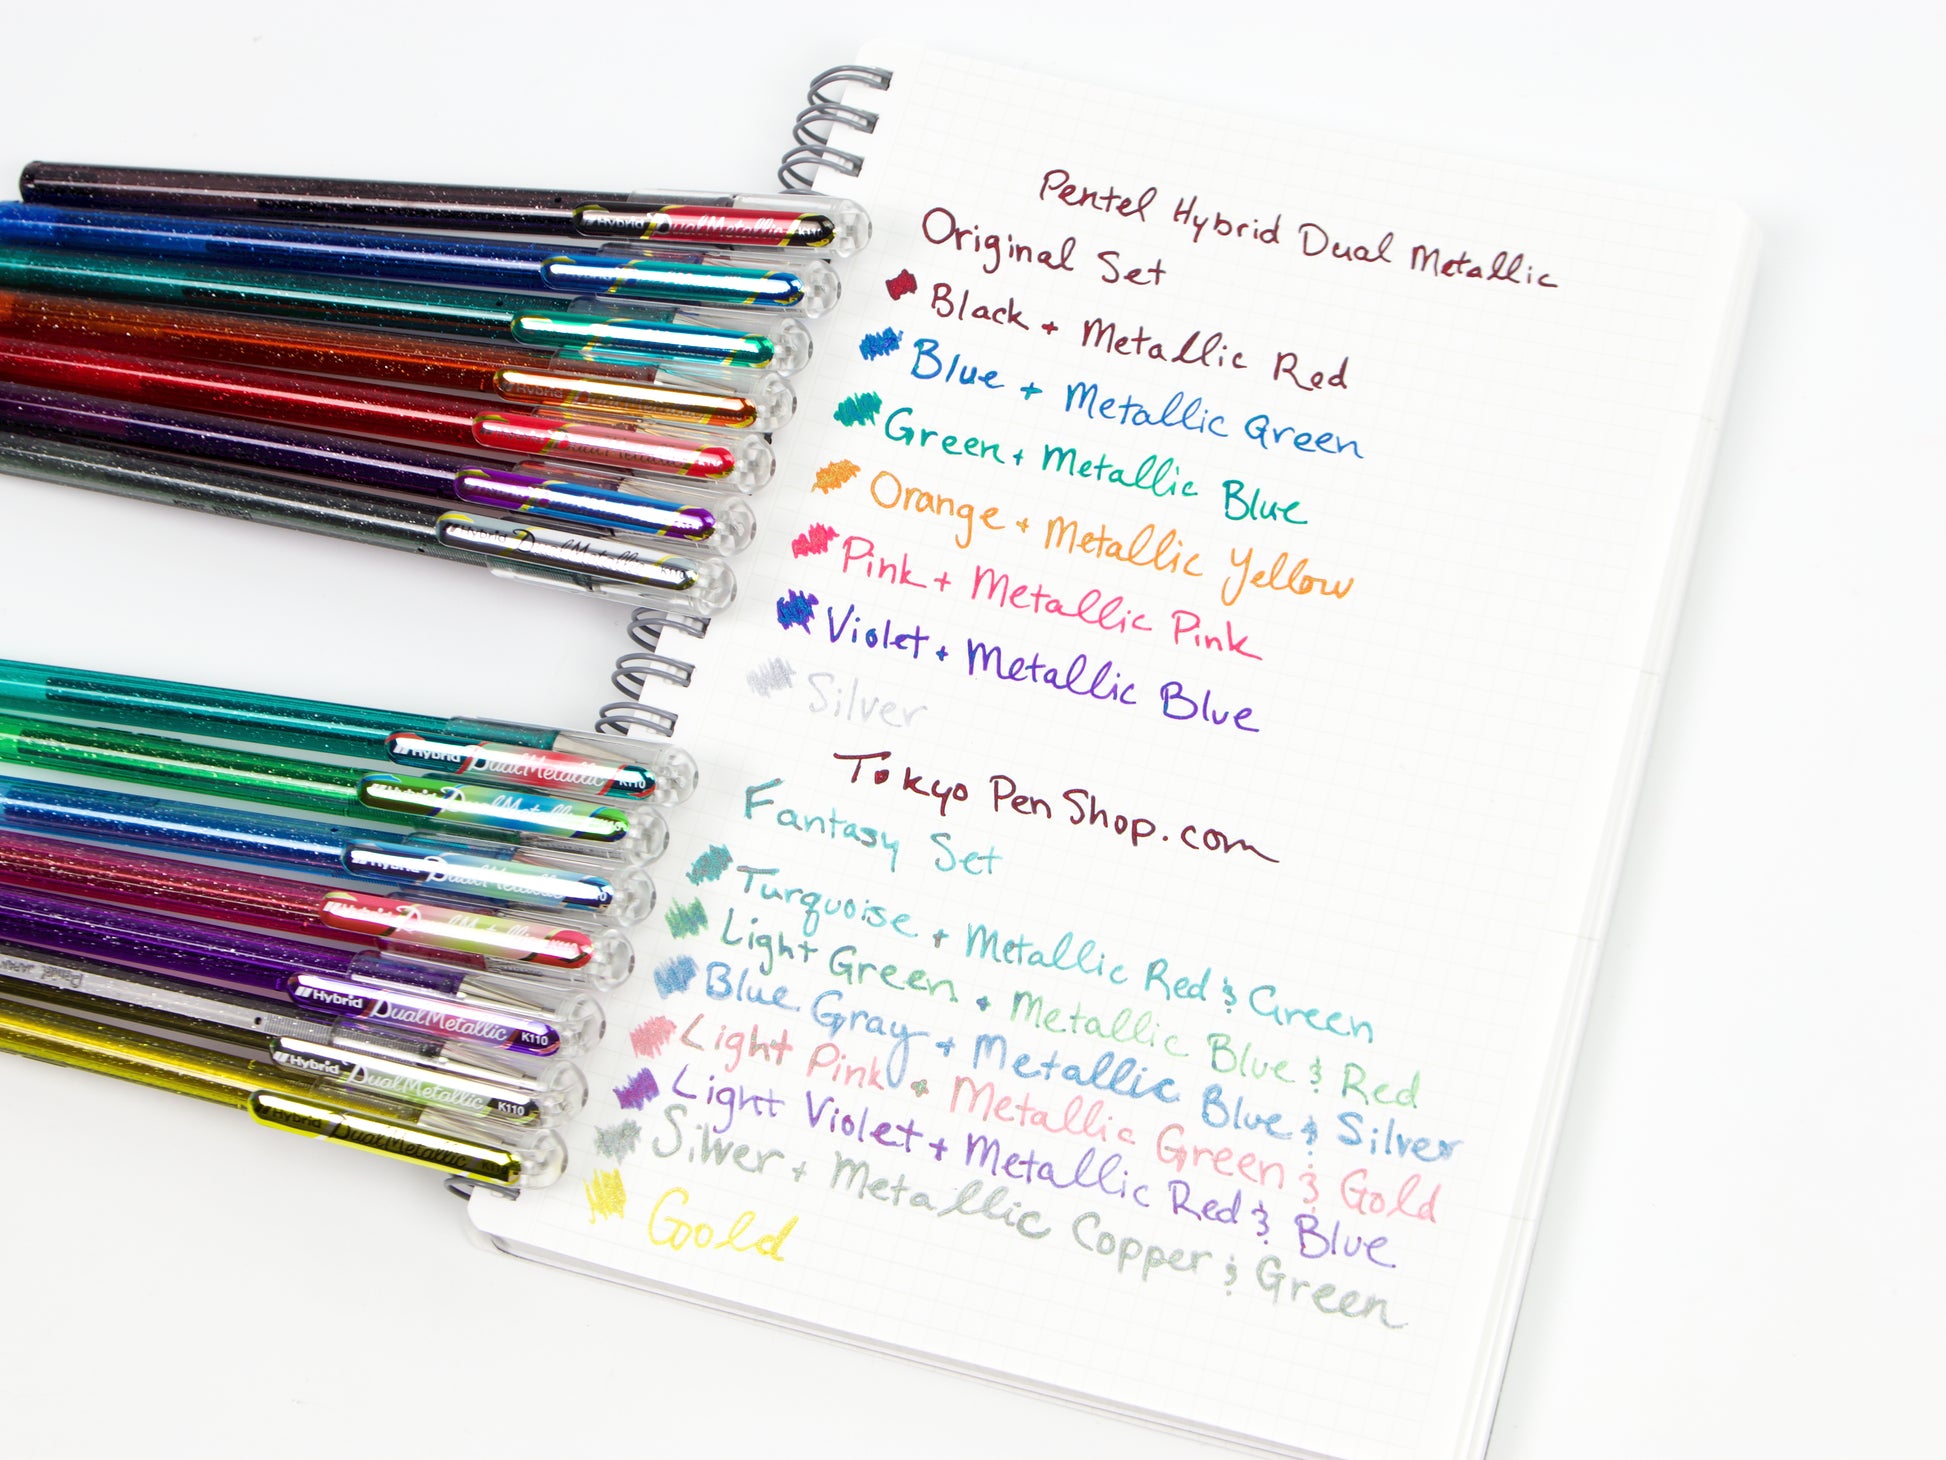 Pentel Hybrid Dual Metallic
Original Set
Black + Metallic Red
Blue + Metallic Green
Green + Metallic Blue
Orange + Metallic Yellow
Pink + Metallic Pink
Violet + Metallic Blue
Silver
Tokyo Pen Shop.com
Fantasy Set
Turquoise + Metallic Red & Green
Light Green + Metallic Blue & Red
Blue Gray + Metallic Blue & Silver
Light Pink + Metallic Green & Gold
Light Violet + Metallic Red & Blue
Silver + Metallic Copper & Green
Gold
Hybrid DualMetallic K110
Hybrid DualMetallic
Hybrid DualMetallic K110
Hybrid DualMetallic K110
DualMetallic
Hybrid DualMetallic
Hybrid DualMetallic
Hybrid DualMetallic K110
Pentel JAPAN
Hybrid DualMetallic K110
Hybrid DualMetallic